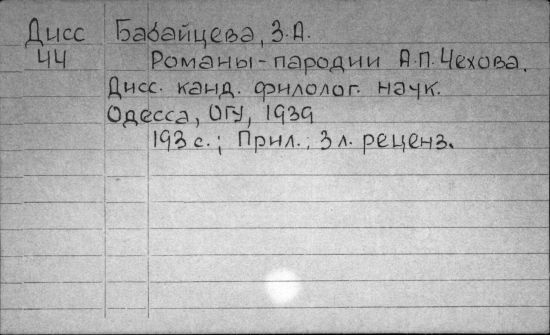 Дисс Бабайцева, З.А.
44 Романы-пародии А.П. Чехова.
Дисс. канд. филолог. наук.
Одесса, ОГУ, 1939
193 с.; Прил.; 3 л. реценз.